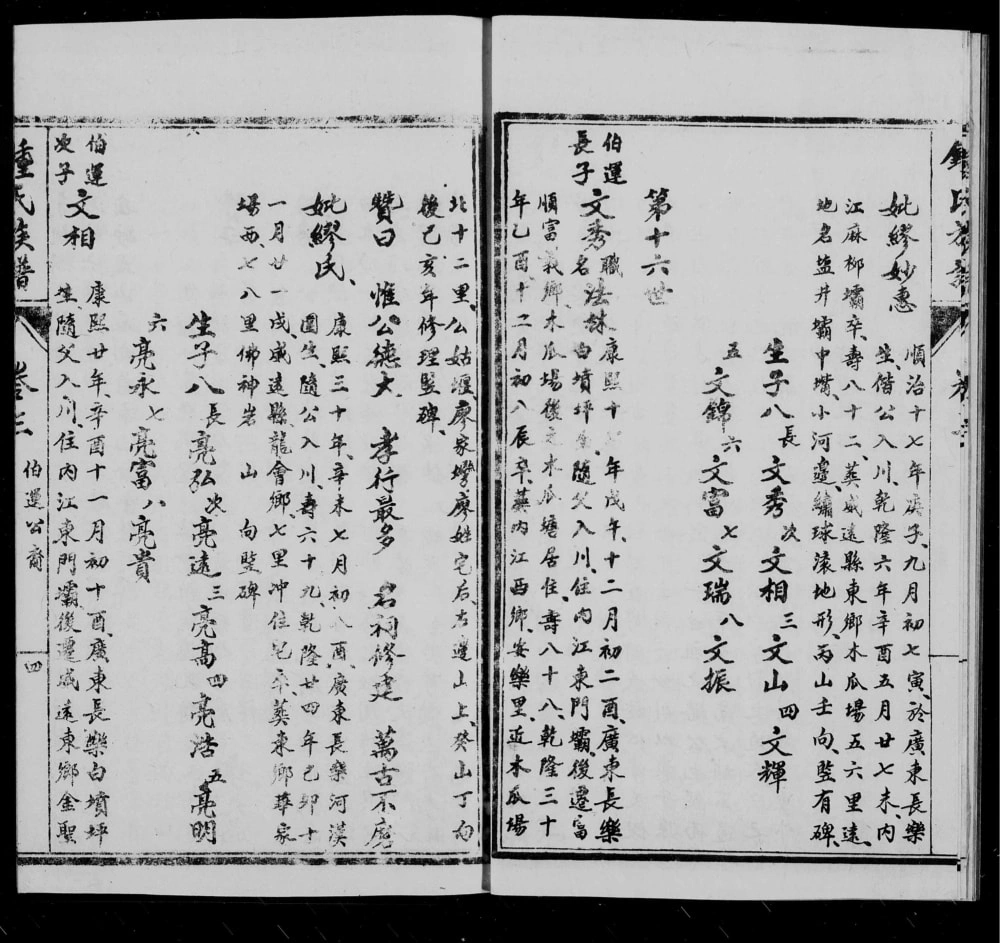 妣繆妙惠
順治十七年庚子、九月初七寅、於廣東長樂
生、偕公入川、乾隆六年辛酉五月廿七未、內
江麻柳壩卒、壽八十二、葬威遠縣東鄉木瓜場五六里遠、
地名盐井壩中嘴、小河邊、繡球滾地形、丙山壬向、竪有碑、
生子八 長 文秀 次 文相 三 文山 四 文輝
五 文錦 六 文富 七 文瑞 八 文振
第十六世
伯運
長子
文秀
職名法妹
康熙十 年戊午、十二月初二酉、廣東長樂
白墳坪生、隨父入川、住內江東門壩後遷富
順富義鄉木瓜場後之木瓜塘居住、壽八十八、乾隆三十
年乙酉十二月初八辰卒、葬內江西鄉、安樂里、近木瓜場
北十二里、公姑堰、廖家塆廖姓宅后右邊山上、癸山丁向
後己亥年修理竪碑、
贊曰 惟公德大 孝行最多 名祠修建 萬古不磨
妣繆氏、
康熙三十年、辛未七月初八酉、廣東長樂河漢
圍生、隨公入川、壽六十九、乾隆廿四年己卯十
一月廿戌、威遠縣龍會鄉、七里冲住宅卒、葬東鄉華家
場西、七八里佛神岩 山 向竪碑
生子八 長 亮弘 次 亮遠 三 亮高 四 亮浩 五 亮明
六 亮永 七 亮富 八 亮貴
伯運
次子
文相
康熙廿年、辛酉十一月初十酉、廣東長樂白墳坪
生、隨父入川、住內江東門壩、後遷威遠東鄉金聖
鍾氏族譜
伯運公裔
四